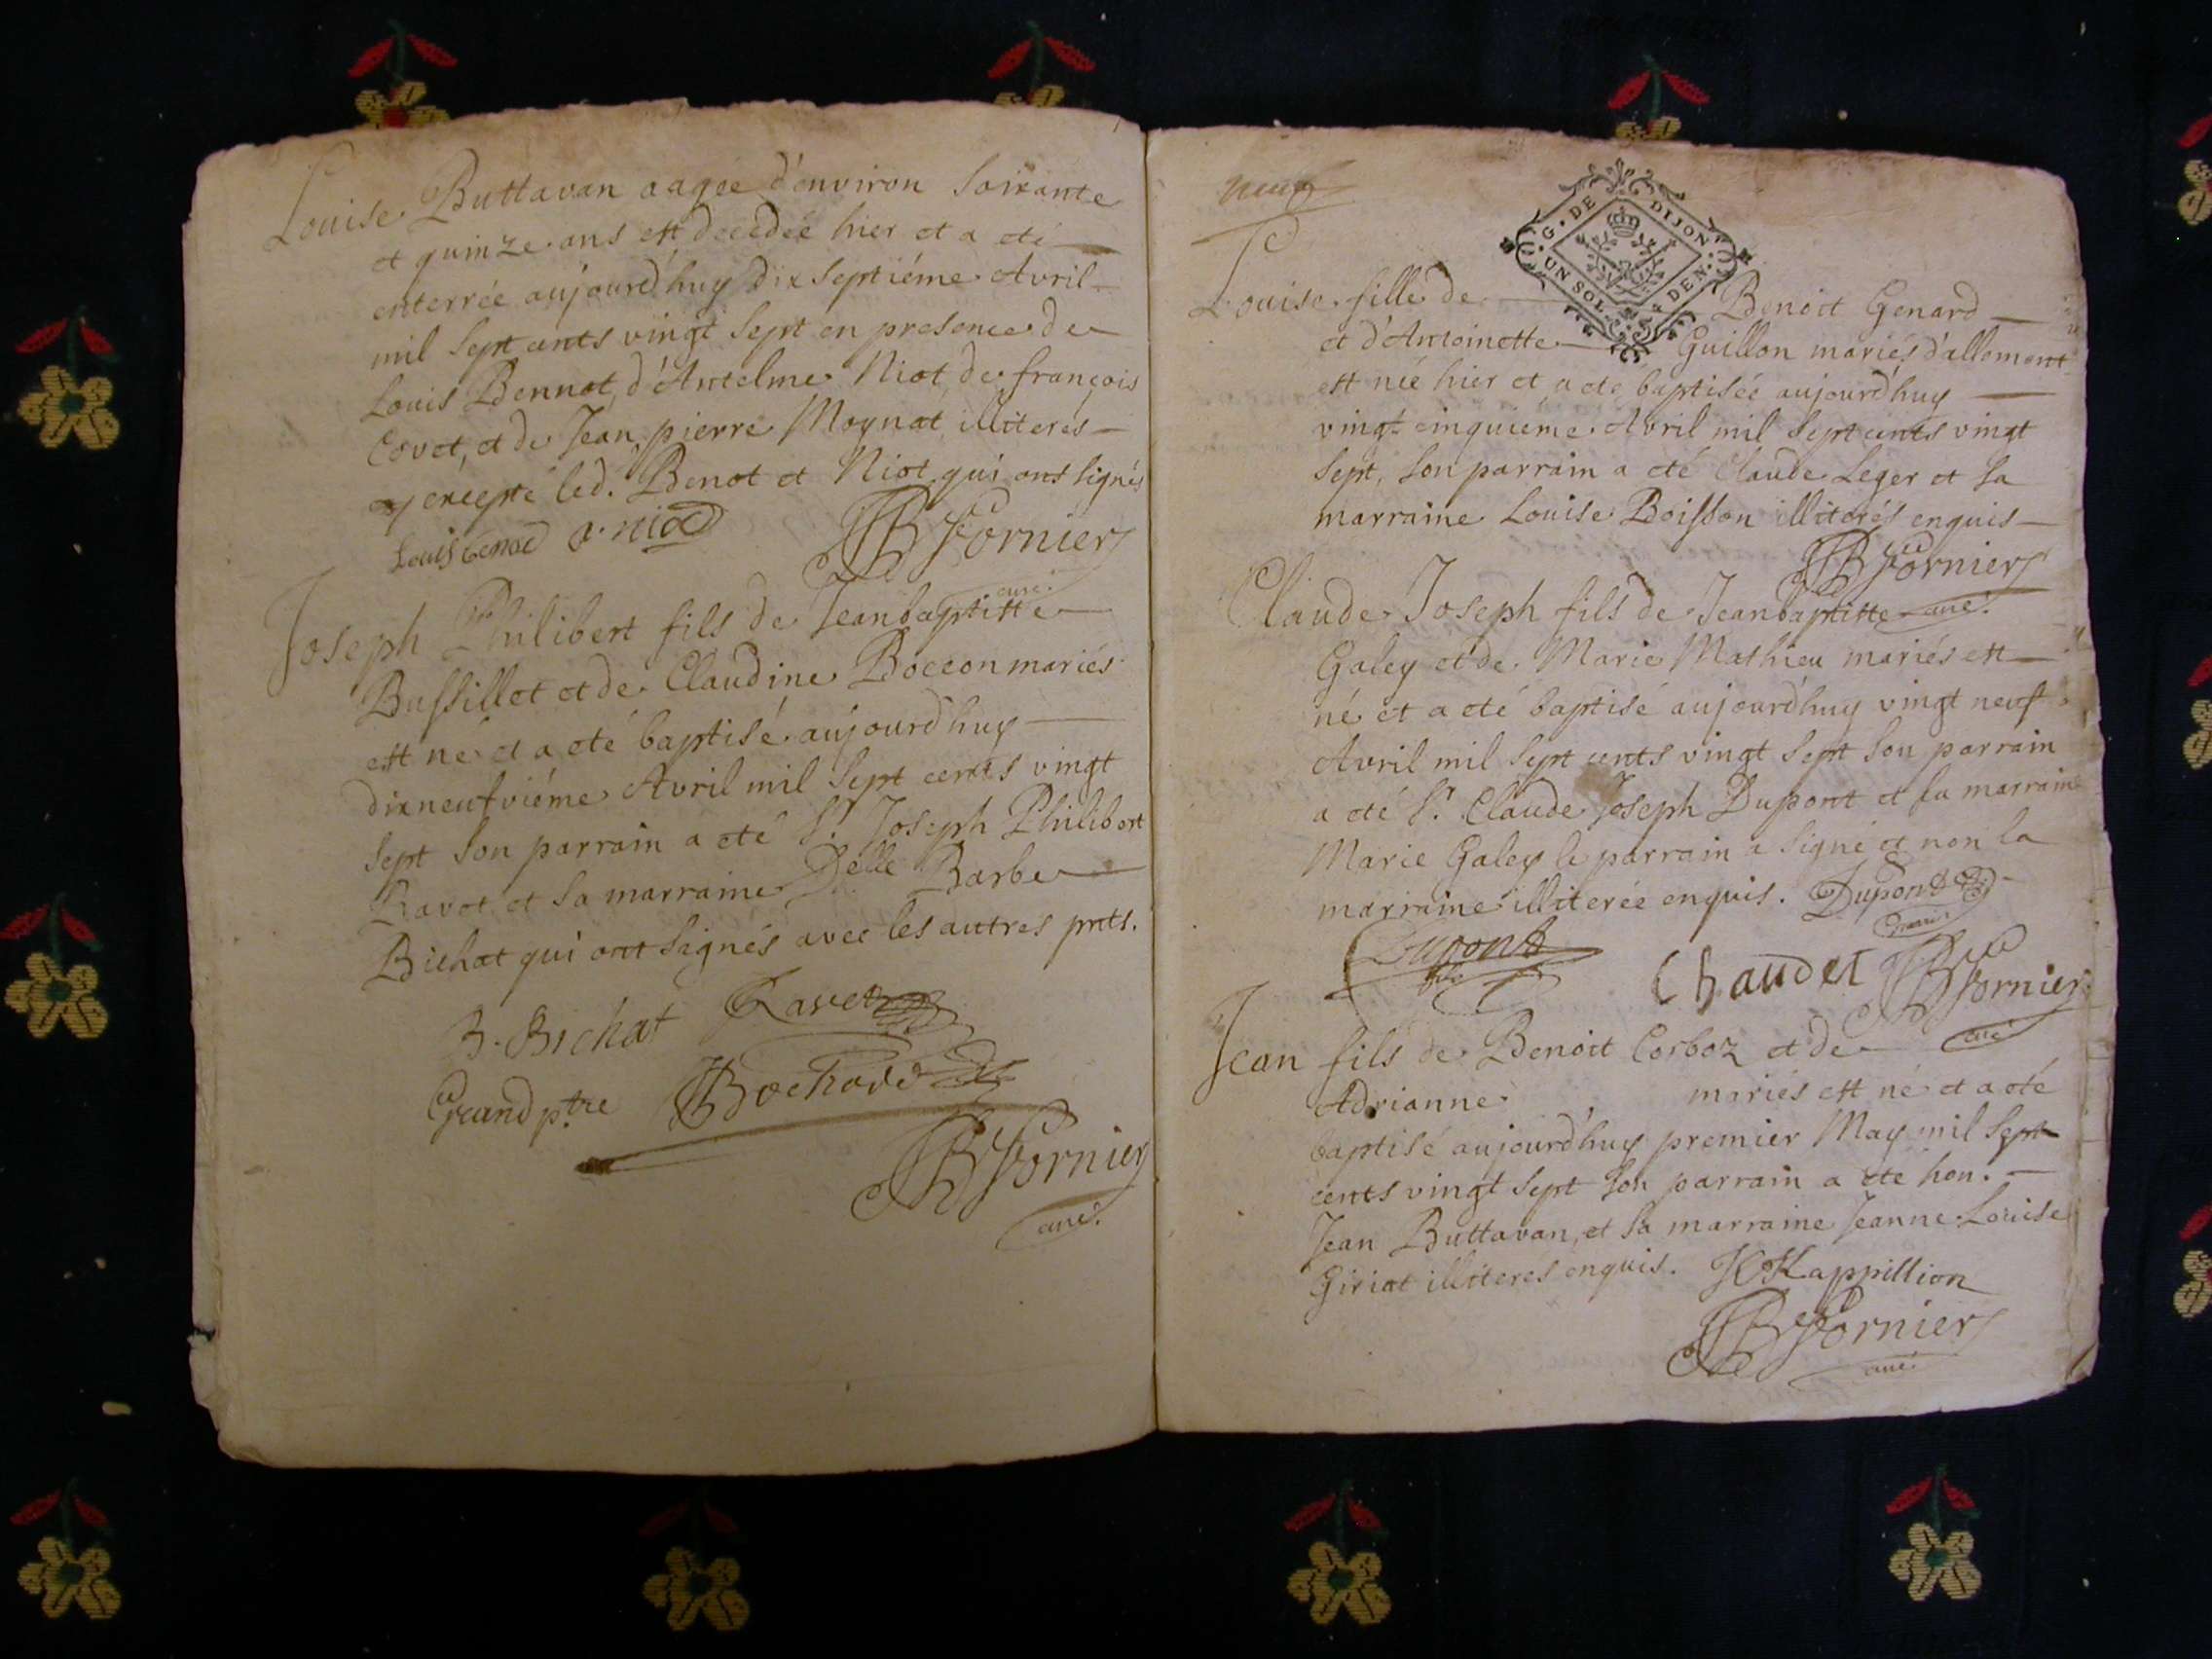 Louise Buttavan aagée d'environ soixante
et quinze ans est decedée hier et a eté
enterrée aujourd'huy dix septiéme Avril
mil sept cents vingt sept en presence de
Louis Bennot, d'Antelme Niot, de françois
Covet, et de Jean pierre Moynat illiterés
excepté led. Benot et Niot qui ont signés
Louis benod a. niod JB Fornier
curé.
Joseph Philibert fils de Jeanbaptiste
Bussillet et de Claudine Boccon mariés
est né et a eté baptisé aujourd'huy
dixneufviéme Avril mil sept cents vingt
sept son parrain a eté Sr. Joseph Philibert
Ravet et sa marraine Delle Barbe
Bichat qui ont signés avec les autres pnts.
B. Bichat Ravet
Grand ptre JBochard
JB Fornier
curé.
neuf
G. DE DIJON
UN SOL 4 DEN.
Louise fille de Benoit Genard
et d'Antoinette Guillon mariés d'allement
est née hier et a eté baptisée aujourd'huy
vingt cinquieme Avril mil sept cents vingt
sept, son parrain a eté Claude Leger et sa
marraine Louise Boisson illiterés enquis
JB Fornier
curé.
Claude Joseph fils de Jeanbaptiste
Galey et de Marie Mathieu mariés est
né et a eté baptisé aujourd'huy vingt neuf
Avril mil sept cents vingt sept son parrain
a eté Sr. Claude Joseph Dupont et sa marraine
Marie Galey le parrain a signé et non la
marraine illiterée enquis. Dupont
Dupont
fils Chaudet JB Fornier
curé
Jean fils de Benoit Corboz et de
Adrianne mariés est né et a eté
baptisé aujourd'huy premier May mil sept
cents vingt sept son parrain a eté hon.
Jean Buttavan, et sa marraine Jeanne Louise
Giriat illiteres enquis. Kappillion
JB Fornier
curé.